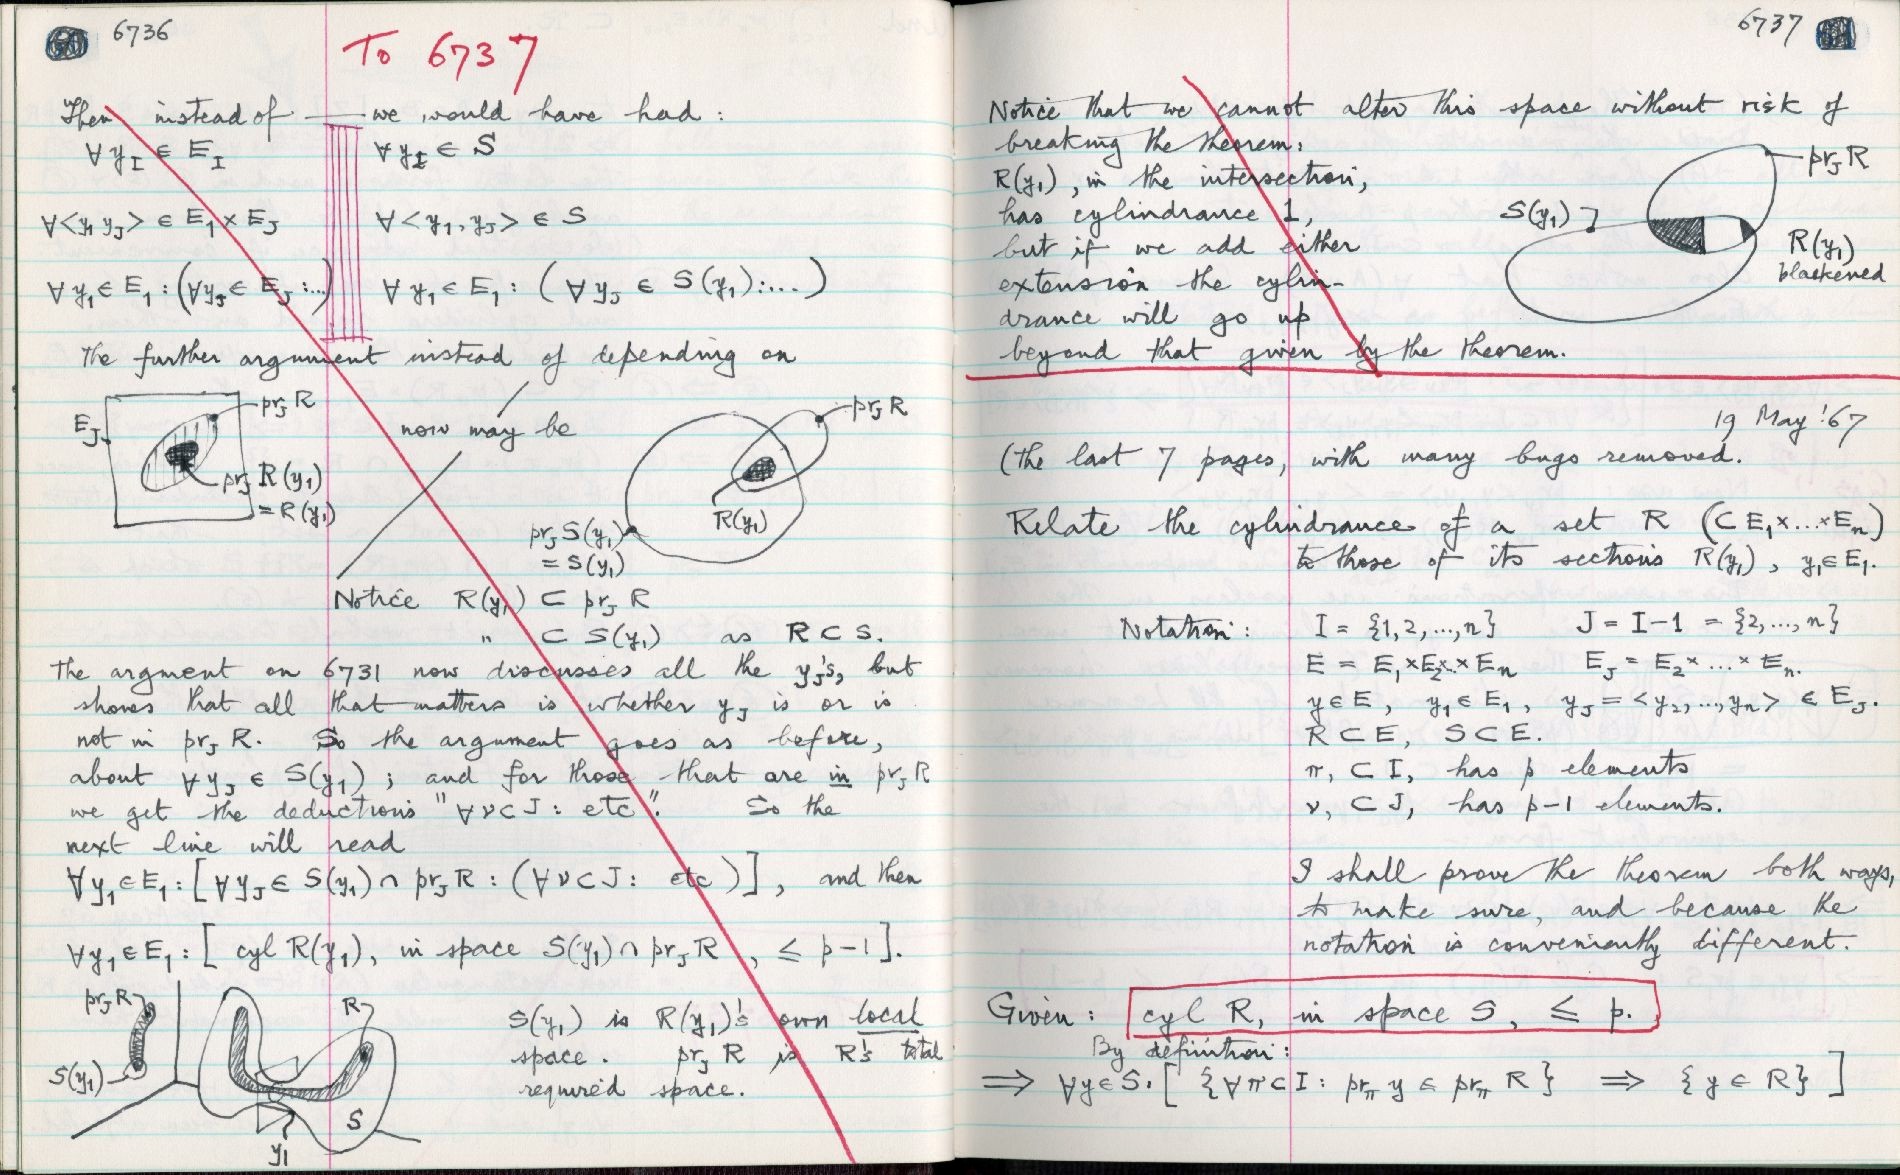 6736
To 6737
Then instead of —— we would have had:
∀ y_I ∈ E_I ∀ y_I ∈ S
∀<y₁ y_J> ∈ E₁ × E_J ∀ <y₁, y_J> ∈ S
∀ y₁ ∈ E₁ : (∀y_J ∈ E_J :...) ∀ y₁ ∈ E₁ : ( ∀ y_J ∈ S(y₁) :... )
The further argument instead of depending on
E_J
pr_J R
pr_J R(y₁)
= R(y₁)
now may be
pr_J R
R(y₁)
pr_J S(y₁)
= S(y₁)
Notice R(y₁) ⊂ pr_J R
" ⊂ S(y₁) as R ⊂ S.
The argment on 6731 now discusses all the y_J's, but
shows that all that matters is whether y_J is or is
not in pr_J R. So the argument goes as before,
about ∀ y_J ∈ S(y₁) ; and for those that are in pr_J R
we get the deductions "∀ν⊂J : etc". So the
next line will read
∀y₁∈E₁ : [∀y_J ∈ S(y₁) ∩ pr_J R : (∀ν⊂J : etc)], and then
∀y₁∈E₁ : [ cyl R(y₁), in space S(y₁) ∩ pr_J R , ≤ p-1].
pr_J R
S(y₁)
R
S
y₁
S(y₁) is R(y₁)'s own local
space. pr_J R is R's total
required space.
6737
Notice that we cannot alter this space without risk of
breaking the theorem:
R(y₁), in the intersection,
has cylindrance 1,
but if we add either
extension the cylin-
drance will go up
beyond that given by the theorem.
pr_J R
S(y₁)
R(y₁)
blackened
19 May '67
(The last 7 pages, with many bugs removed.
Relate the cylindrance of a set R (⊂ E₁×...×Eₙ)
to those of its sections R(y₁), y₁∈E₁.
Notation: I = {1,2,...,n} J = I-1 = {2,...,n}
E = E₁×E₂×..×Eₙ E_J = E₂×...×Eₙ.
y∈E, y₁∈E₁, y_J = <y₂,...,yₙ> ∈ E_J.
R⊂E, S⊂E.
π, ⊂ I, has p elements
ν, ⊂ J, has p-1 elements.
I shall prove the theorem both ways,
to make sure, and because the
notation is conveniently different.
Given: cyl R, in space S, ≤ p.
By definition:
⟹ ∀y∈S. [ {∀π⊂I : pr_π y ∈ pr_π R} ⟹ {y ∈ R} ]